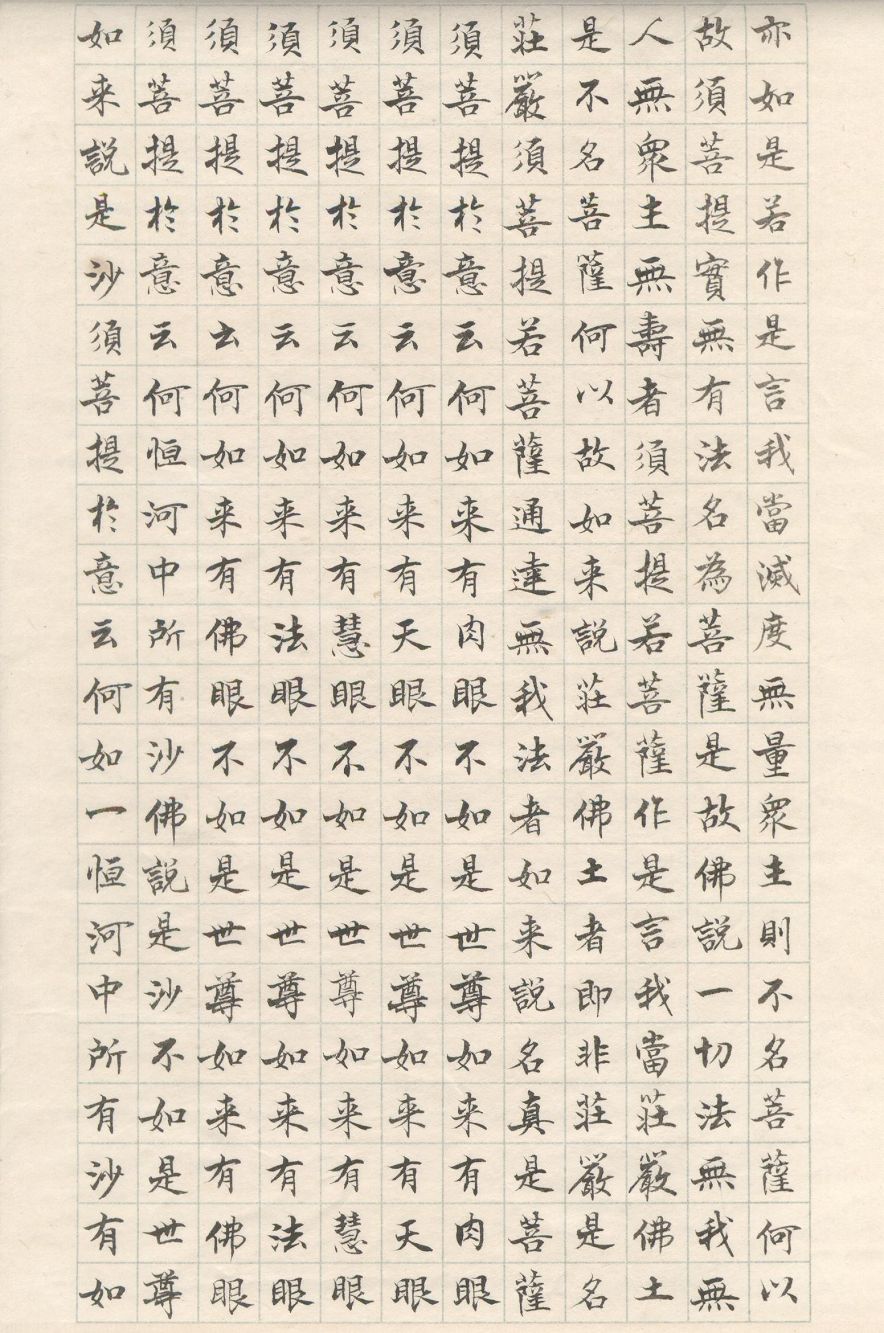 亦如是若作是言我當滅度無量眾生則不名菩薩何以
故須菩提實無有法名為菩薩是故佛說一切法無我無
人無眾生無壽者須菩提若菩薩作是言我當莊嚴佛土
是不名菩薩何以故如来說莊嚴佛土者即非莊嚴是名
莊嚴須菩提若菩薩通達無我法者如来說名真是菩薩
須菩提於意云何如来有肉眼不如是世尊如来有肉眼
須菩提於意云何如来有天眼不如是世尊如来有天眼
須菩提於意云何如来有慧眼不如是世尊如来有慧眼
須菩提於意云何如来有法眼不如是世尊如来有法眼
須菩提於意云何如来有佛眼不如是世尊如来有佛眼
須菩提於意云何恒河中所有沙佛說是沙不如是世尊
如来說是沙須菩提於意云何如一恒河中所有沙有如